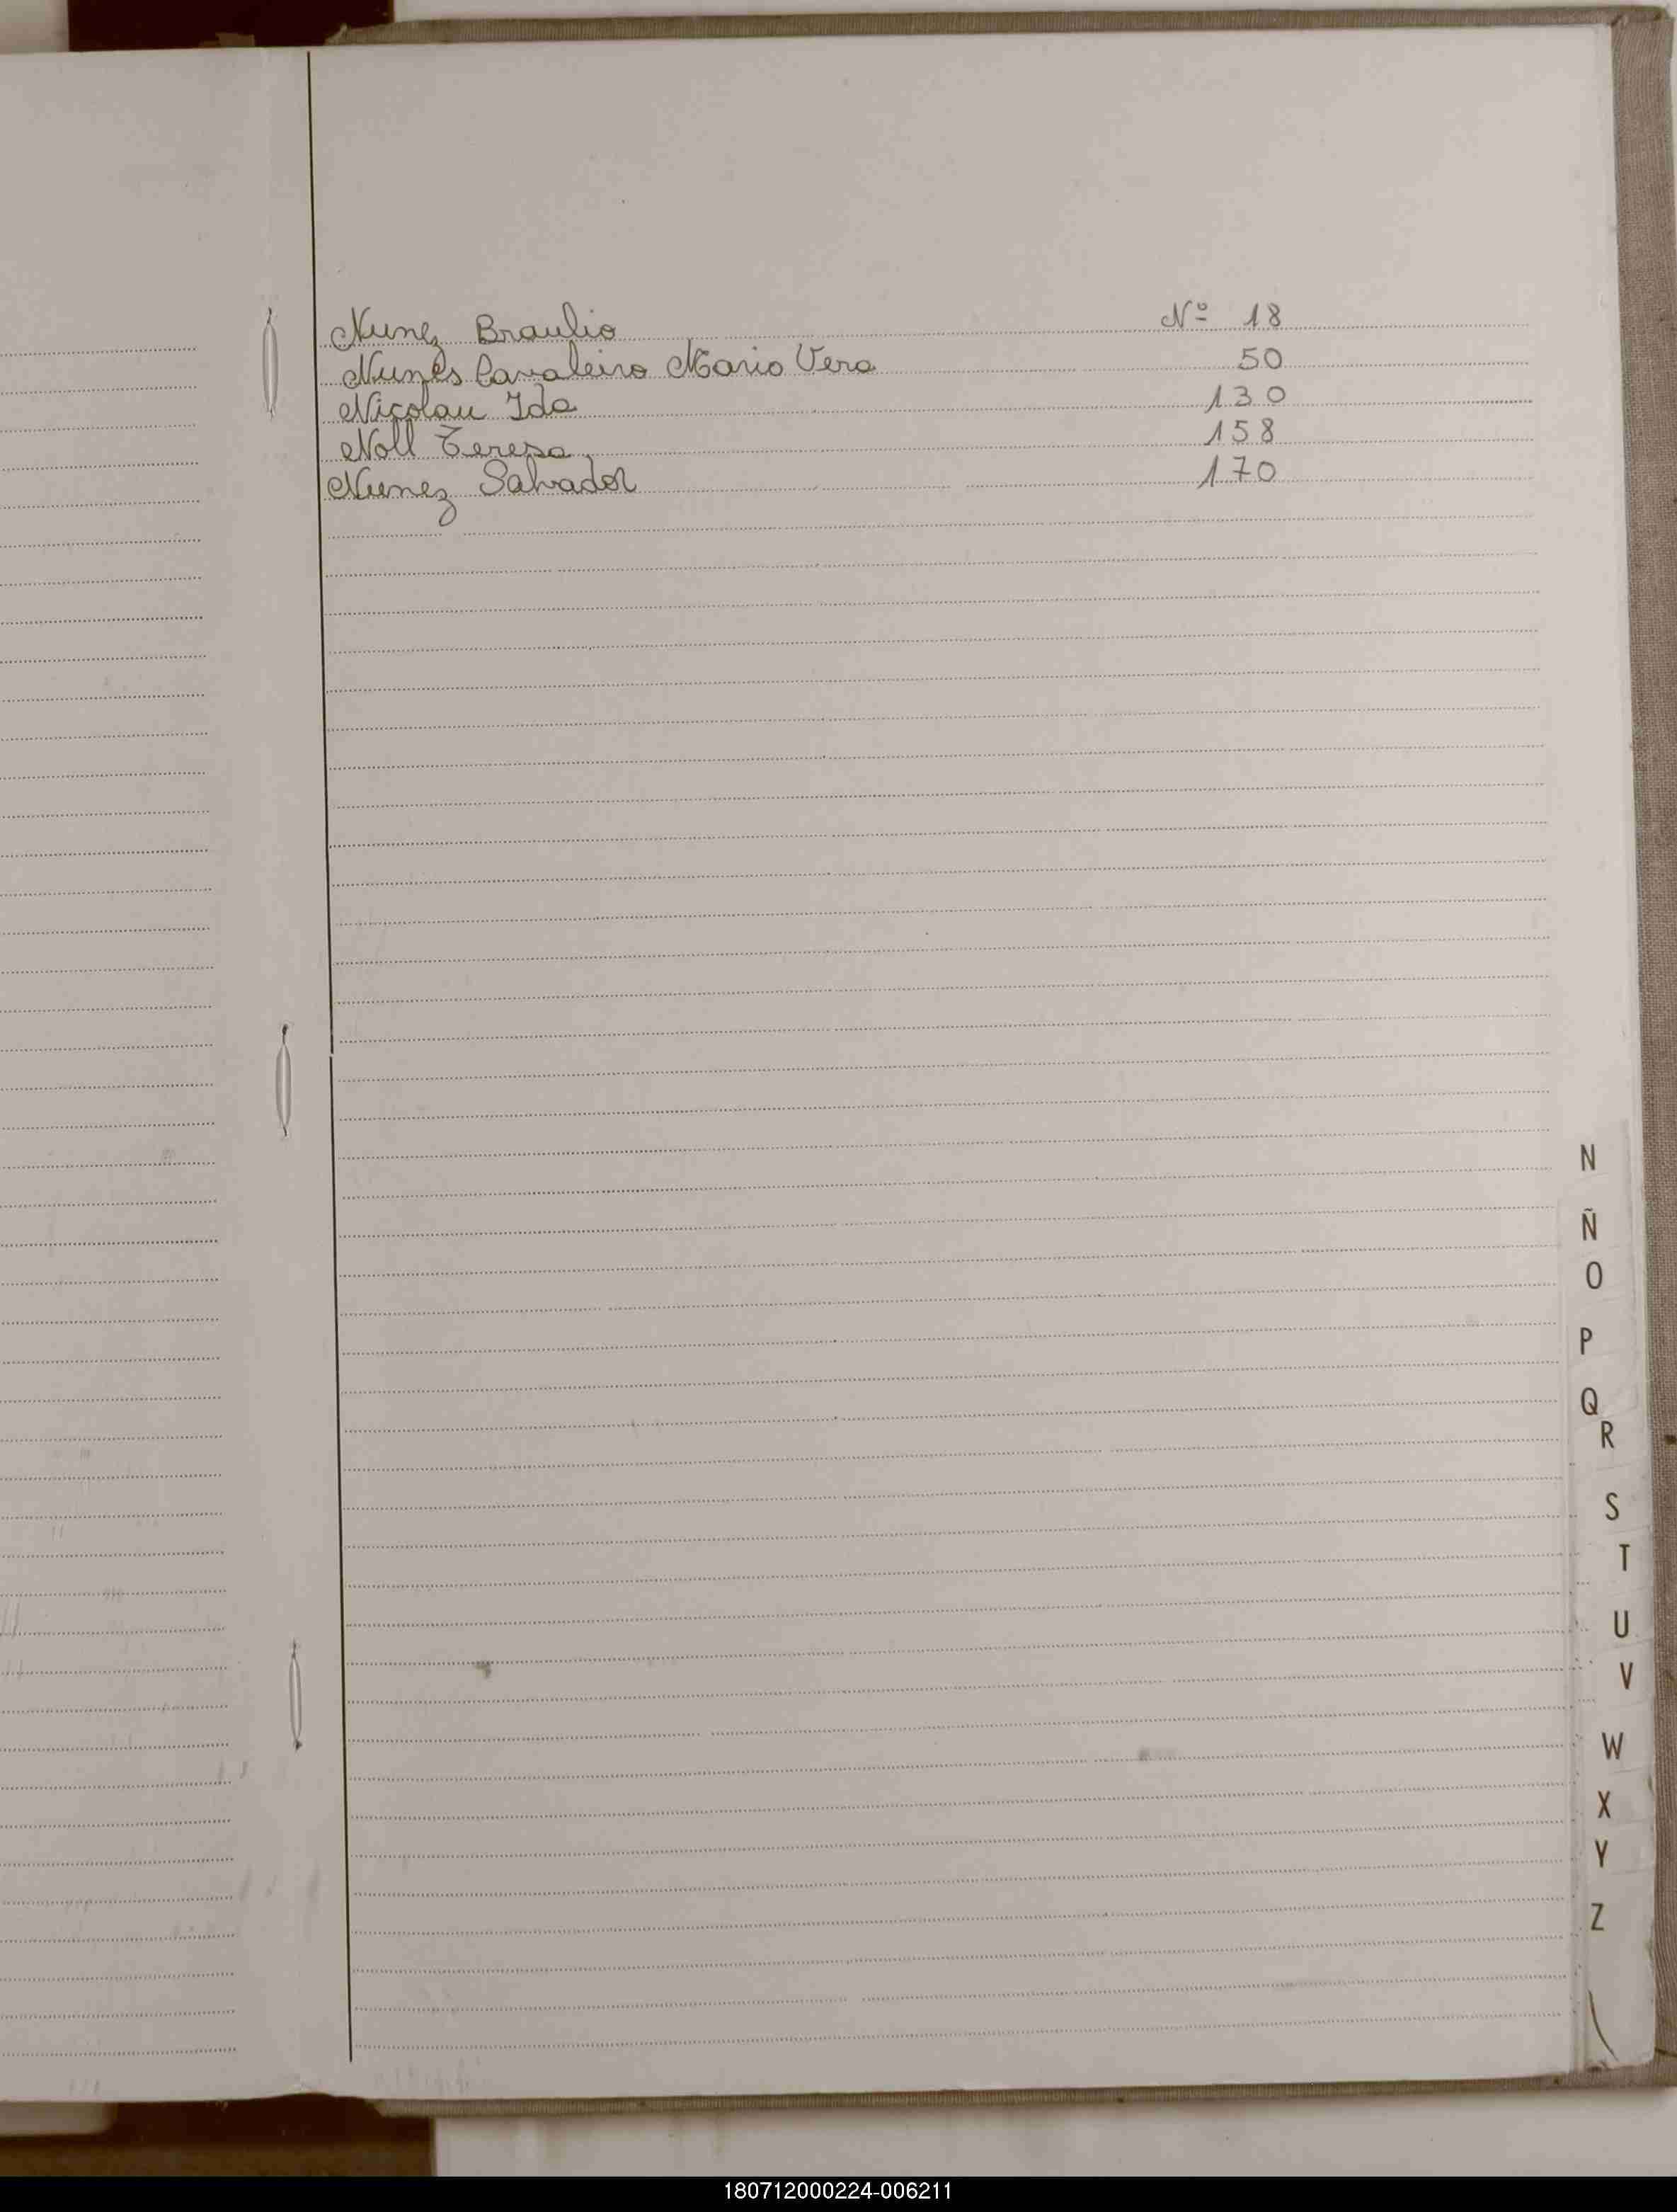 Nunez Braulio Nº 18
Nunes Cavaleiro Mario Vera 50
Nicolau Ida 130
Noll Teresa 158
Nunez Salvador 170
N
Ñ
O
P
Q
R
S
T
U
V
W
X
Y
Z
180712000224-006211